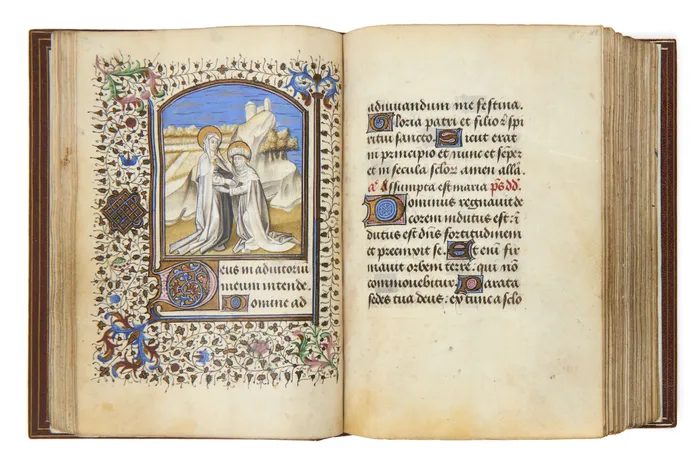 Deus in adiutoriu
meum intende.
Domine ad
adiuuandum me festina.
Gloria patri et filio et spi
ritui sancto. Sicut erat
in principio et nunc et seper
et in secula seclor amen allā.
añ Assumpta est maria pš dd.
Dominus regnauit de
corem indutus est: in
dutus est dn̄s fortitudinem
et precinxit se. Et eniȝ fir
mauit orbem terre. qui nō
commouebitur. Parata
sedes tua deus: ex tunc a sclo